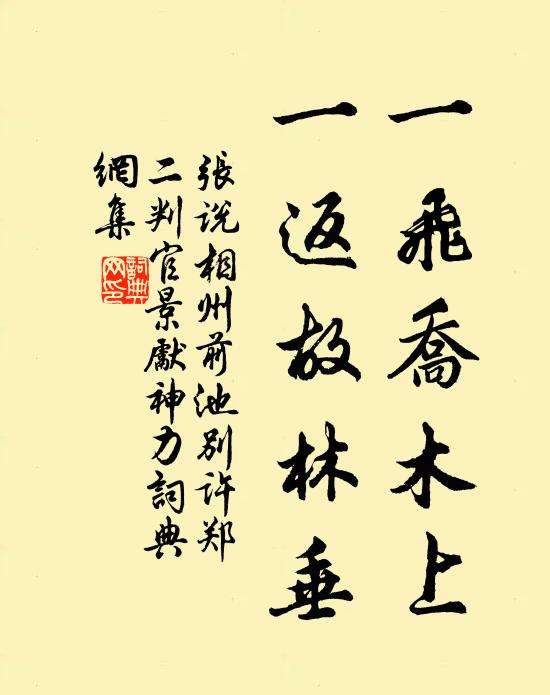 一飛喬木上
一返故林垂
張説相州前池別许郑
二判官景献神力詞典
網集
詞典網印